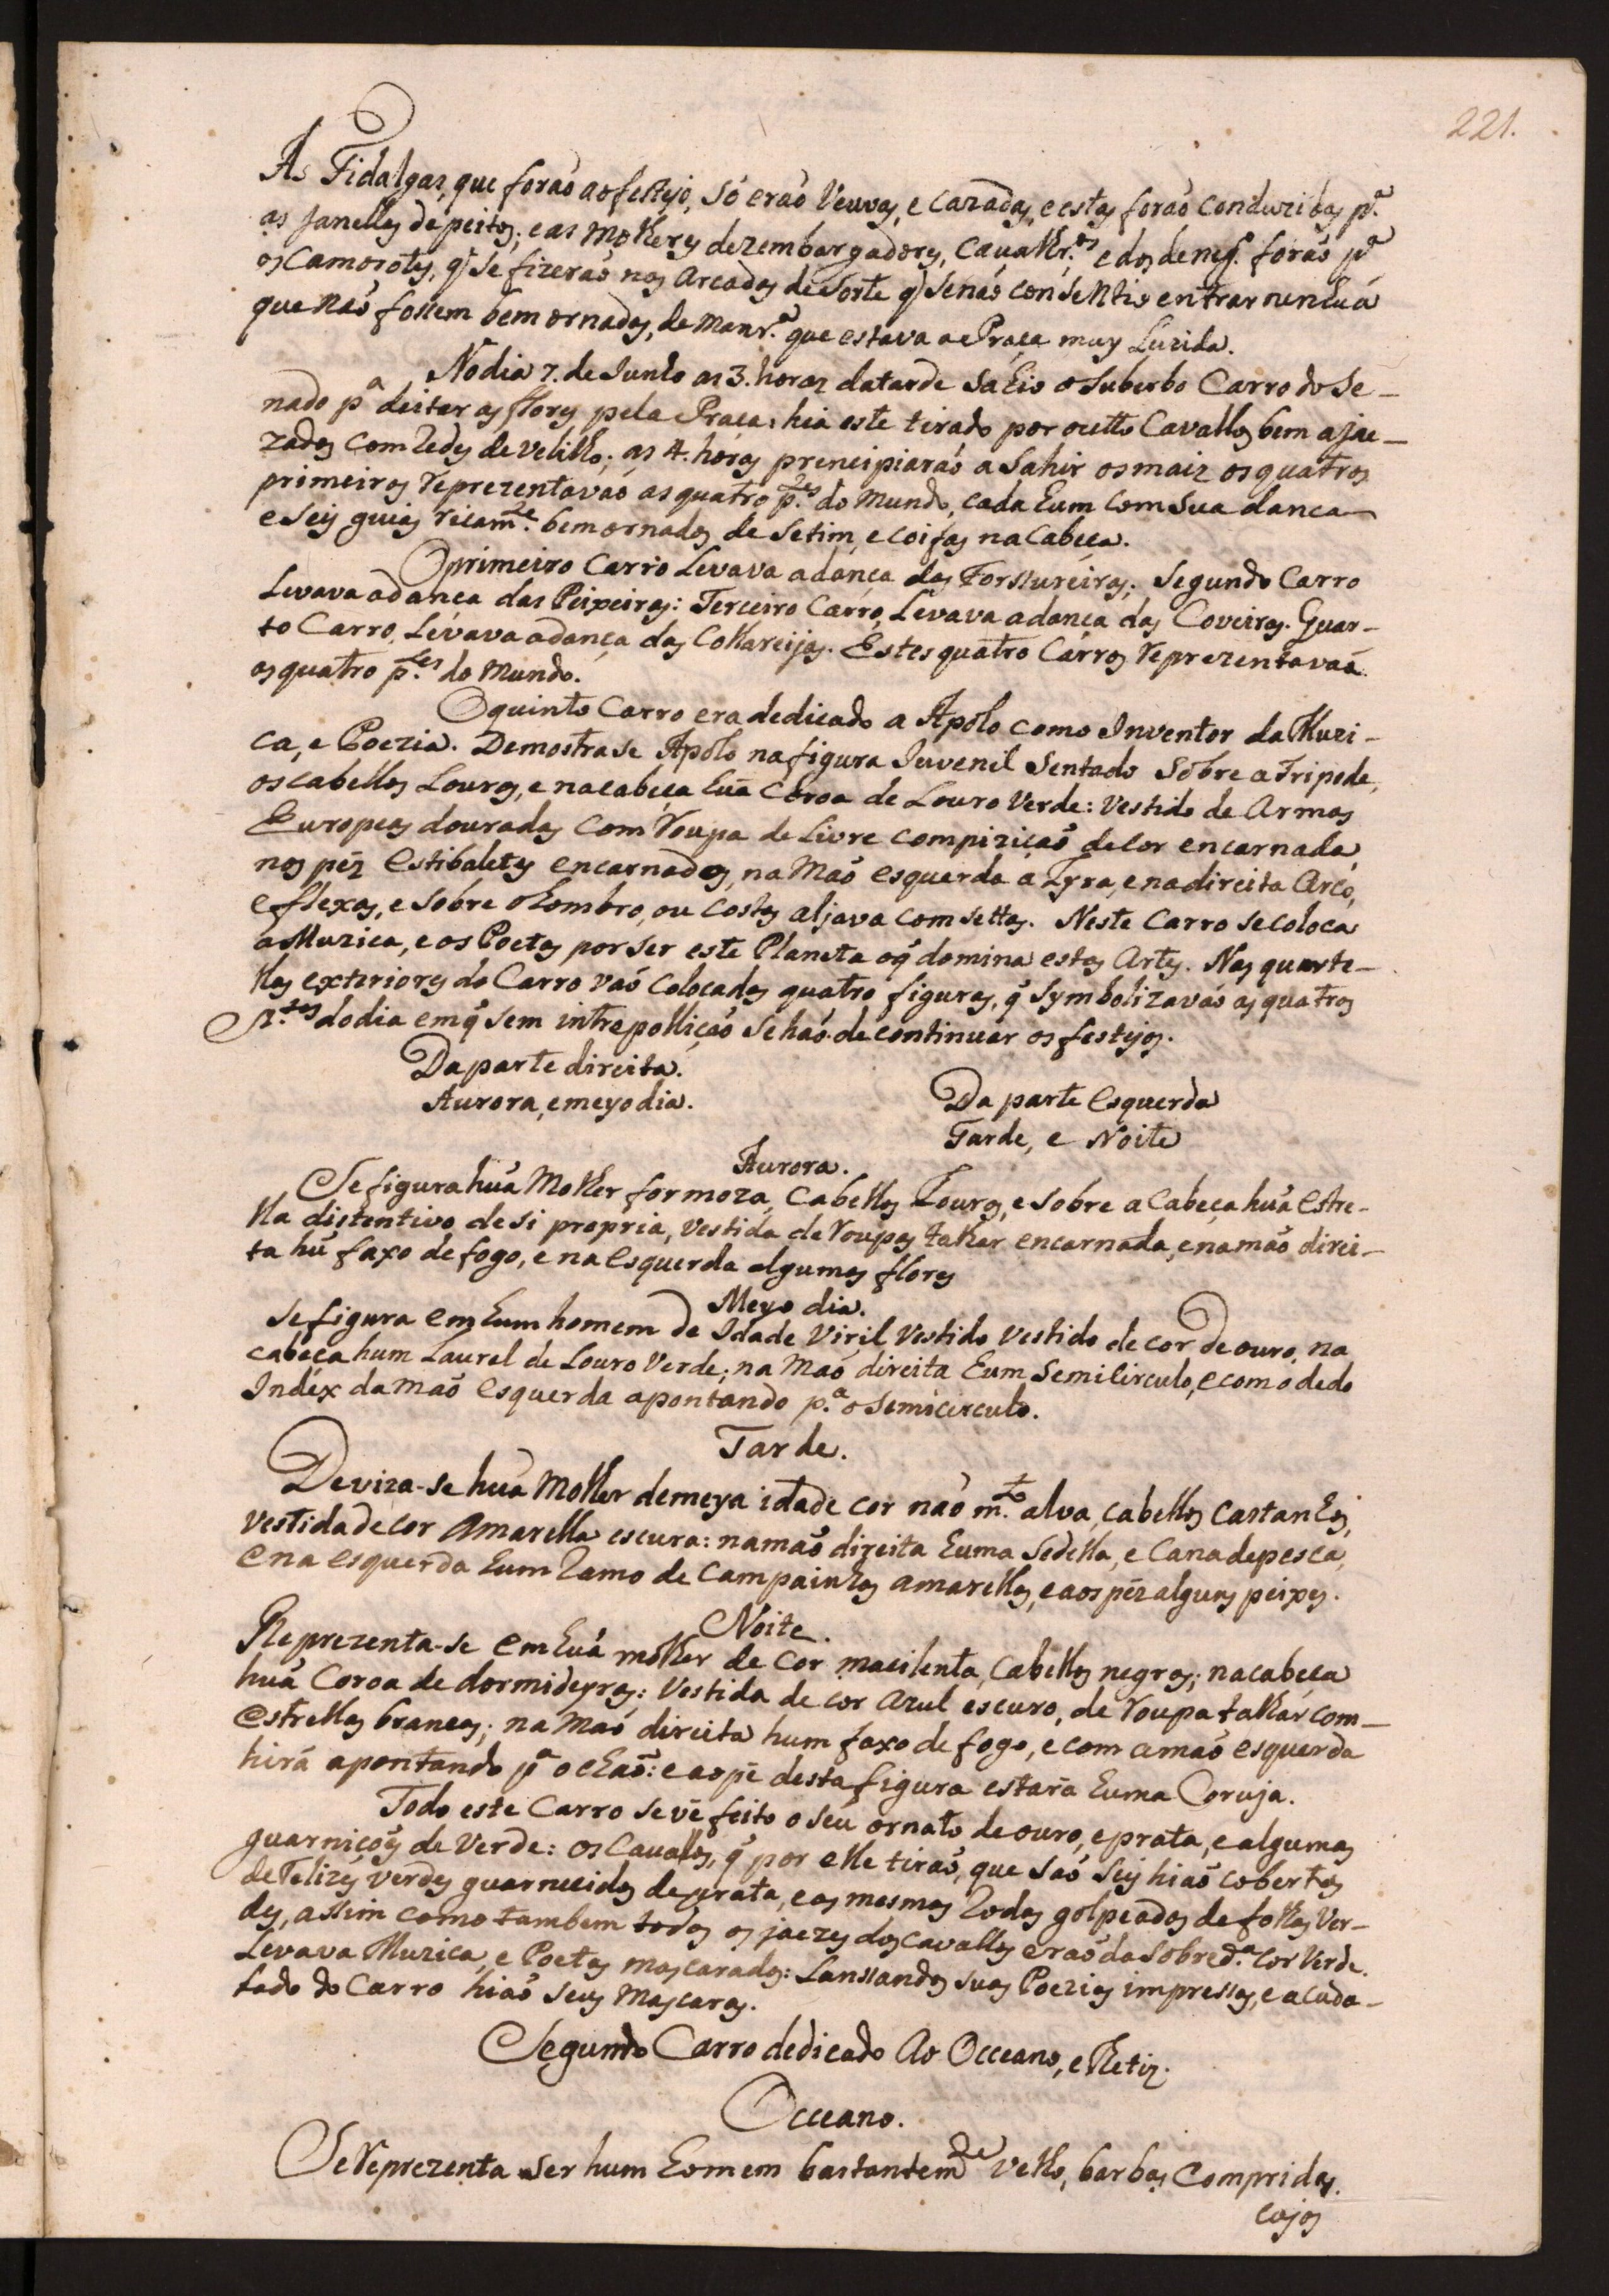 221.
As Fidalgas, que foraõ ao festejo, só eraõ Veuvas, e cazadas, e estas foraõ conduzidas p.ª
as janellas de peitos; e as Molheres dezembargadores, Cavalhr.ºs e dos de neg.º foraõ p.ª
os Camorotes, q̃ se fizeraõ nos Arcadas de Sorte q̃ se naõ consentio entrar nenhuã
que naõ fossem bem ornadas, de Manr.ª que estava a Praça muy Luzida.
No dia 7. de Junho as 3. horas da tarde Sahio o Suberbo Carro do Se-
nado p.ª deitar as flores pela Praça, hia este tirado por outto Cavallos bem ajae-
zados com Redes de velilho; as 4. horas prencipiaraõ a Sahir os maiz os quatros
primeiros reprezentavaõ as quatro p.tes do Mundo, cada hum com sua danca
e seis guias ricam.te bem ornados de Setim, e coifas na Cabeça.
O primeiro Carro Levava a dança das Forssureiras; Segundo Carro
Levava a danca das Peixeiras: Terceiro Carro, Levava a dança das Coveiras. Quar-
to Carro, Levava a dança das Collareijas. Estes quatro Carros reprezentavaõ
as quatro p.tes do Mundo.
O quinto Carro era dedicado a Apolo como Inventor da Muzi-
ca, e Poezia. Demostrase Apolo na figura Juvenil Sentado Sobre a Tripode,
os cabellos Louros, e na cabeça huã Coroa de Louro Verde: Vestido de Armas
Europeas douradas com roupa de Livre compiziçaõ de cor encarnada,
nos péz Estibaletes encarnados, na Maõ esquerda a Lyra, e na direita Arco,
e flexas, e sobre o hombro, ou costas aljava com settas. Neste Carro se coloca
a Muzica, e os Poetas por ser este Planeta o q̃ domina estas Artes. Nas quarte-
llas exteriores do Carro vaõ Colocadas quatro figuras, q̃ Symbolizavaõ as quatros
P.tes do dia em q̃ sem intrepolliçaõ se haõ de continuar os festejos.
Da parte direita.
Aurora, e meyo dia.
Da parte Esquerda
Tarde, e Noite
Aurora.
Se figura huã Molher formoza, Cabellos Louros, e sobre a Cabeça huã Estre-
lla distentivo de si propria, vestida de roupas talhar encarnada, e na maõ direi-
ta hũ faxo de fogo, e na esquerda algumas flores
Meyo dia.
Se figura em hum homem de Idade Viril Vestido Vestido de cor de ouro, na
cabeça hum Laurel de Louro Verde; na Maõ direita hum Semicirculo, e com o dedo
Index da maõ Esquerda apontando p.ª o semicirculo.
Tarde.
Deviza-se huã Molher de meya idade cor naõ m.to alva, cabellos Castanhos,
Vestida de cor Amarella escura: na maõ direita huma Sedella, e Cana de pesca,
e na esquerda hum Ramo de Campainhas amarellas, e aos péz alguns peixes.
Noite.
Reprezenta-se em huã molher de Cor macilenta, Cabellos negros; na cabeca
huã Coroa de dormideyras: Vestida de cor Azul escuro, de roupa talhar com
Estrellas brancas; na Maõ direita hum faxo de fogo, e com a maõ esquerda
hirá apontando p.ª o chaõ: e ao pé desta figura estará huma Coruja.
Todo este Carro se vé feito o seu ornato de ouro, e prata, e algumas
guarniçoẽs de Verde: os Cavallos, q̃ por elle tiraõ, que saõ seis hiaõ cobertos
de Telizes verdes guarnecidos de prata, e as mesmas Rodas golpeadas de folhas Ver-
des, assim como tambem todos os jaezes dos cavallos eraõ da sobred.ª Cor Verde.
Levava Muzica, e Poetas mascarados: Lanssando suas Poezias impressas, e a cada
lado do Carro hiaõ seus Mascaras.
Segundo Carro dedicado Ao Occeano, e Thetiz.
Occeano.
Se reprezenta ser hum homem bastantem.te velho, barbas Compridas.
cujos